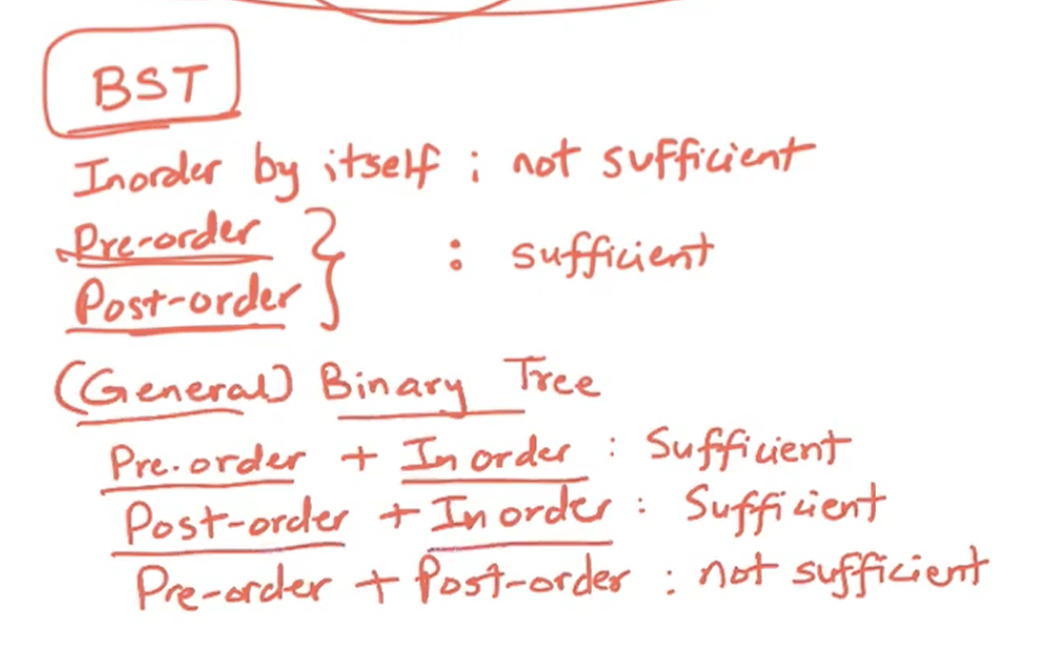 BST
Inorder by itself ; not sufficient
Pre-order
Post-order } : sufficient
(General) Binary Tree
Pre.order + Inorder : Sufficient
Post-order + Inorder : Sufficient
Pre-order + Post-order : not sufficient